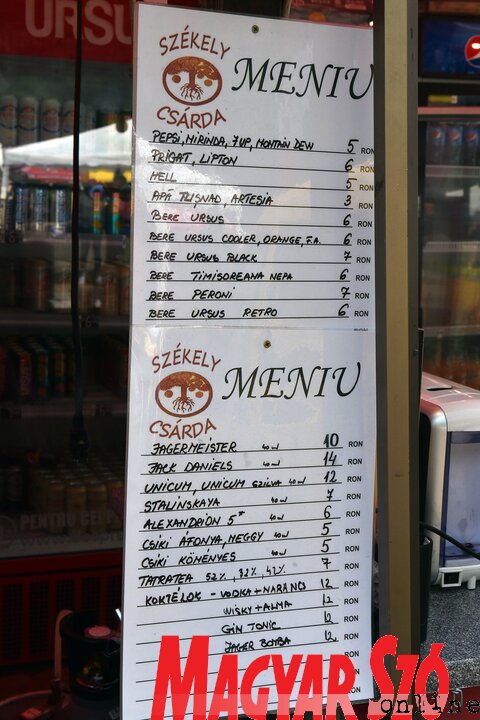 URSU
SZÉKELY
CSÁRDA
MENIU
PEPSI, MIRINDA, 7UP, MONTAIN DEW 5 RON
PRIGAT, LIPTON 6 RON
HELL 5 RON
APĂ TUSNAD, ARTESIA 3 RON
BERE URSUS 6 RON
BERE URSUS COOLER, ORANGE, F.A. 6 RON
BERE URSUS BLACK 7 RON
BERE TIMISOREANA NEPA 6 RON
BERE PERONI 7 RON
BERE URSUS RETRO 6 RON
SZÉKELY
CSÁRDA
MENIU
JAGERMEISTER 40 ml 10 RON
JACK DANIELS 40 ml 14 RON
UNICUM, UNICUM SZILVA 40 ml 12 RON
STALINSKAYA 40 ml 7 RON
ALEXANDRION 5* 40 ml 6 RON
CSÍKI ÁFONYA, MEGGY 40 ml 5 RON
CSÍKI KÖMÉNYES 40 ml 5 RON
TATRATEA 52%, 32%, 42% 7 RON
KOKTÉLOK - VODKA + NARANCS 12 RON
WISKY + ALMA 12 RON
GIN TONIC 12 RON
JAGER BOMBA 12 RON
PENTRU
MAGYAR SZÓ
online